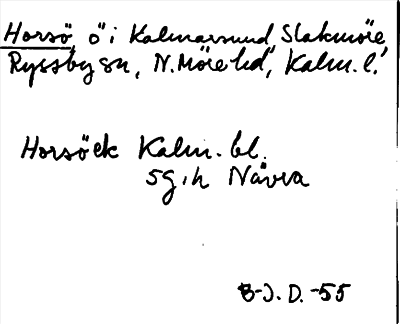 Horsö, ö i Kalmarsund, Slakmöre,
Ryssby sn, N. Möre hd, Kalm. l.
Horsö ek Kalm. bl.
5g, h Nävra
B-J. D. -55